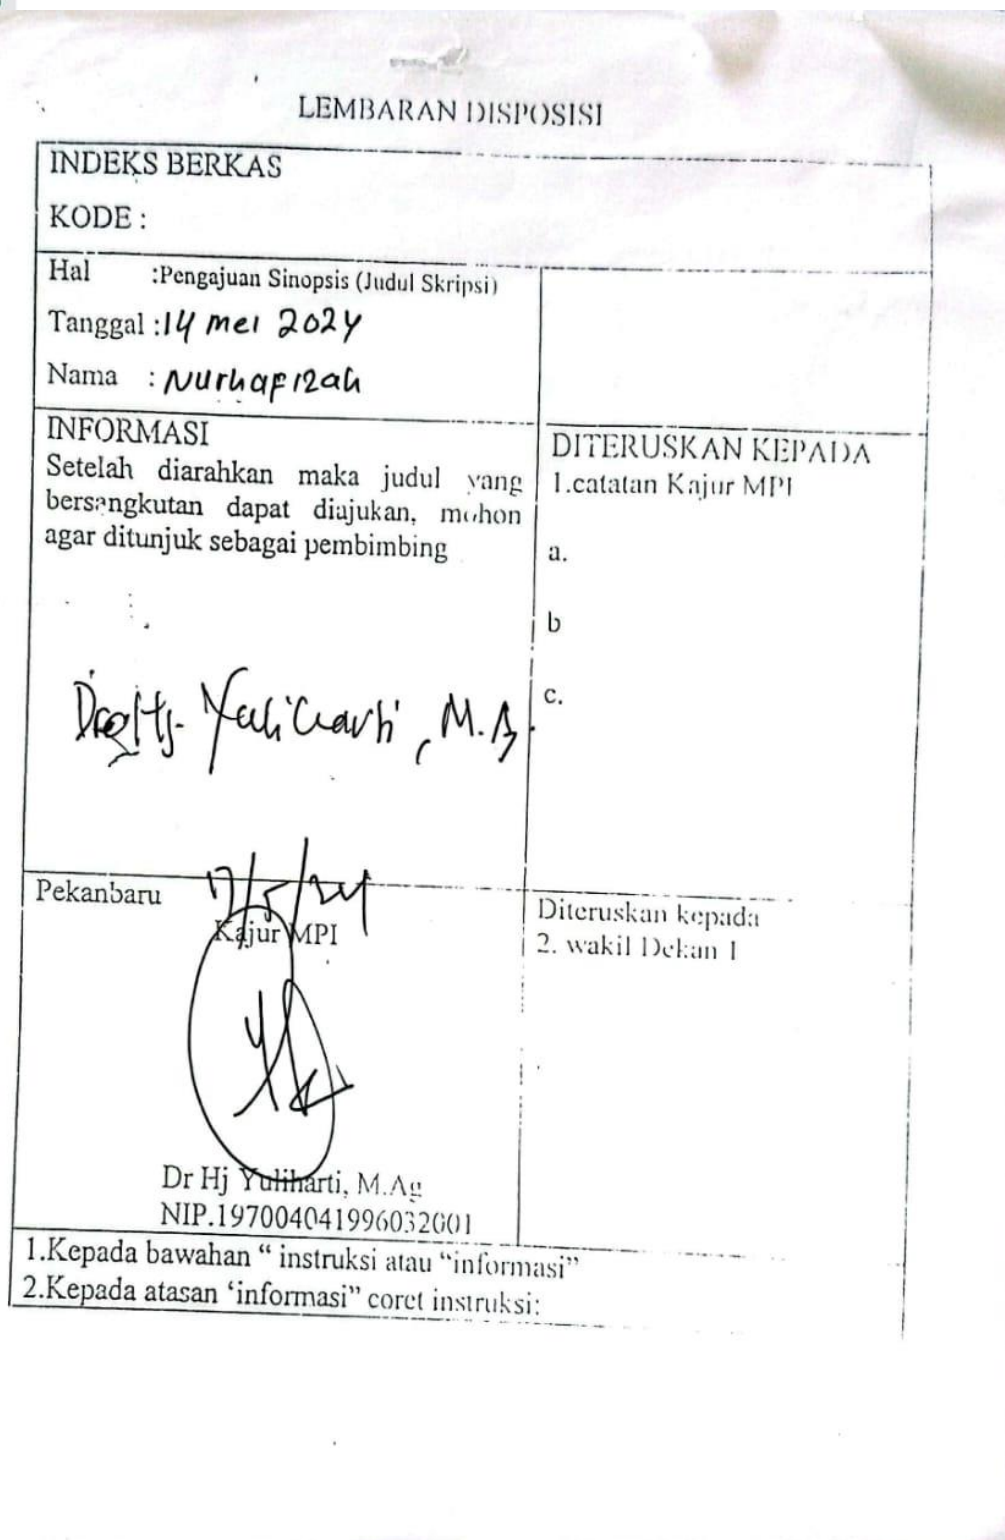 LEMBARAN DISPOSISI
INDEKS BERKAS
KODE :
Hal :Pengajuan Sinopsis (Judul Skripsi)
Tanggal :14 mei 2024
Nama : Nurhafizah
INFORMASI
Setelah diarahkan maka judul yang
bersangkutan dapat diajukan, mohon
agar ditunjuk sebagai pembimbing
Yuliharti, M.Ag
DITERUSKAN KEPADA
1.catatan Kajur MPI
a.
b
c.
Pekanbaru 17/5/24
Kajur MPI
Dr Hj Yuliharti, M.Ag
NIP.197004041996032001
Diteruskan kepada
2. wakil Dekan 1
1.Kepada bawahan “ instruksi atau “informasi”
2.Kepada atasan ‘informasi” coret instruksi: